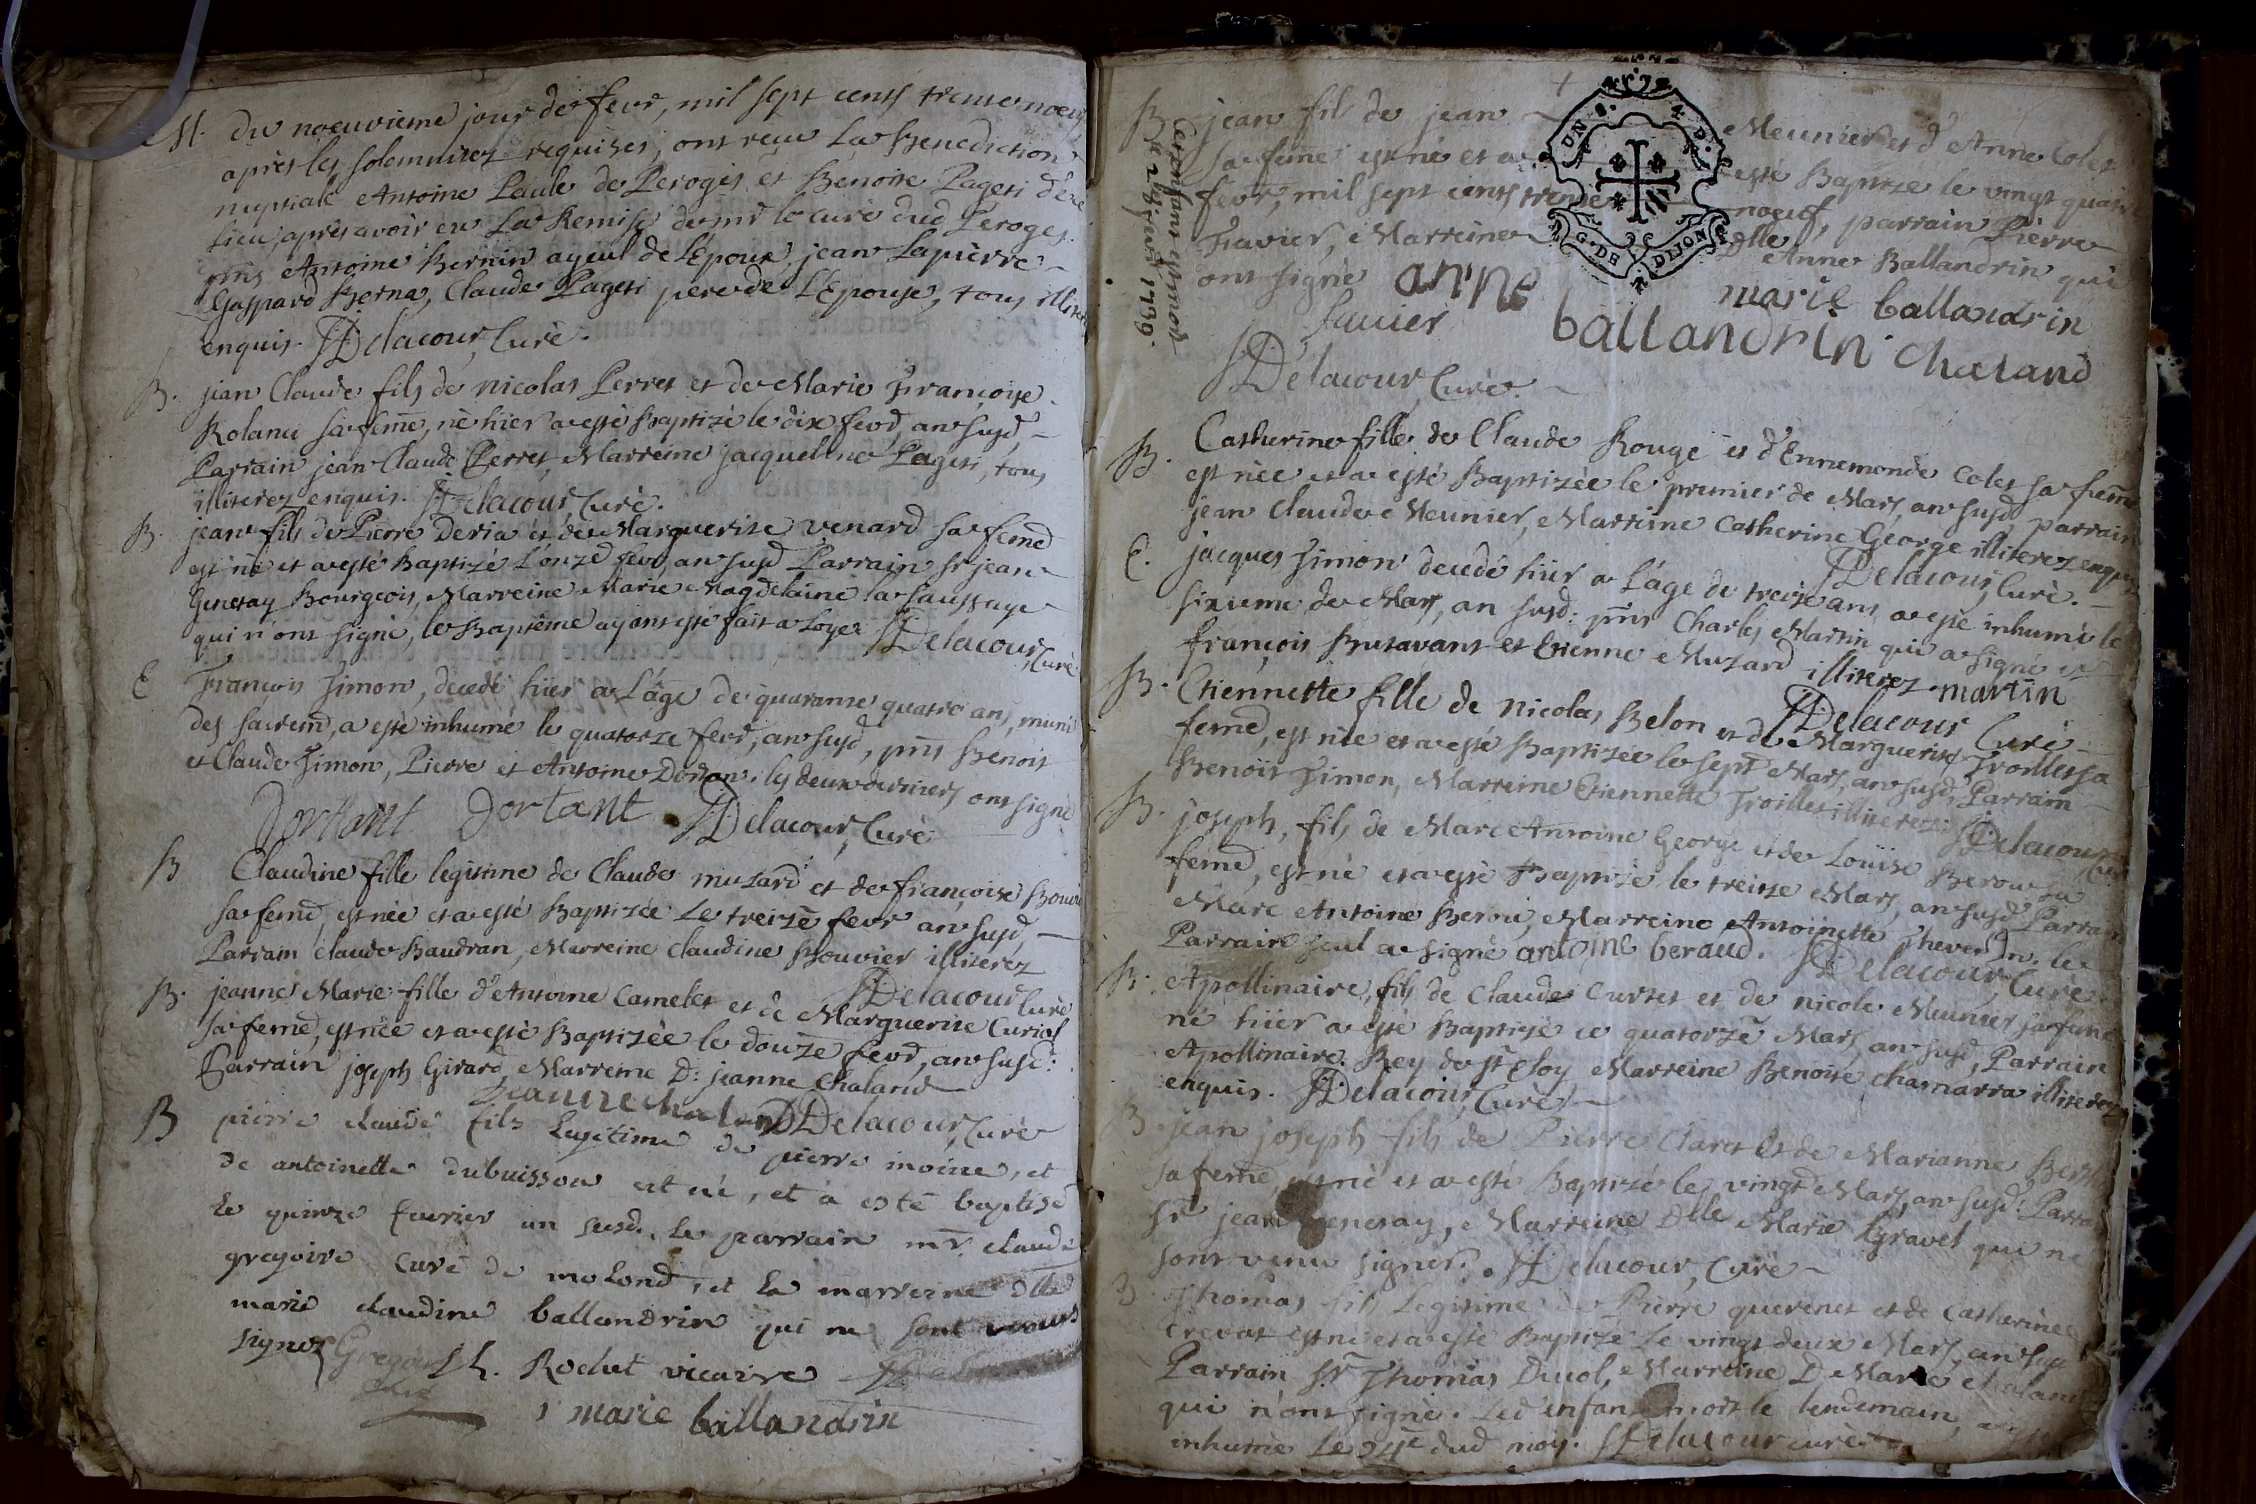 M. Du noeuvieme jour de fevr, mil sept cents trente noeuf
après les solemnitez requises, ont reçu La Benediction
nuptiale Antoine Paule de Peroges et Benoite Pageti d'ice
lieu, après avoir eu La Remise de mr le curé dud Peroges.
pnts Antoine Bernin ayeul de L'Epoux, jean Lapierre
Gaspard Berna, Claude Pageti pere de L'Epouse, tous illiterez
enquis. Delacour, Curé.
B. jean Claude fils de nicolas Perret et de Marie Françoise
Rolanu sa feme, né hiier a esté Baptizé le dix fevd, an susd
Parrain jean Claude Perret, Marreine jacqueline Pageti, tous
illiterez enquis. Delacour, Curé.
B. jean fils de Pierre Deria et de Marguerite venard sa femd
est né et a esté Baptizé L'onze fevd, an susd Parrain sr jean
Generay Bourgeois, Marreine Marie Magdelaine la saussaye
qui n'ont signé, le Baptême ayant esté fait a Loyes Delacour, Curé
E François Simon, decedé hiier a L'âge de quarante quatre ans, muni
des sacremd, a esté inhumé le quatorze fevd, an susd, pnts Benoit
et Claude Simon, Pierre et Antoine Dortan, les deux derniers ont signé
Dortant Dortant Delacour, Curé
B Claudine fille legitime de Claude mutard et de françoise Bouvier
sa femd, est née et a esté Baptizée Le treize fevr an susd,
Parrain Claude Baudran, Marreine Claudine Bouvier illiterez
Delacour Curé
B. jeanne Marie fille d'Antoine Camelet et de Marguerite Curial
sa femd, est née et a esté Baptizée le douze fevd, an susd:
Parrain joseph Girard, Marreine D: jeanne Chaland
jeanne chaland Delacour, Curé
B pierre claude fils Legitime de pierre moine, et
de antoinette dubuisson est né, et a esté baptisé
le quinze fevrier an susd. le parrain mr. claude
gregoire curé de molond, et la marreine dlle
marie claudine ballandrin qui ne sont venus
signer Gregoire
h. Rochet vicaire
marie ballandrin
B jean fils de jean Meunier et d'Anne Colet
sa feme est né et a esté Baptizé le vingt quatre
fevr, mil sept cents trente noeuf, parrain Pierre
Favier, Marreine Dlle Anne Ballandrin qui
ont signé anne ballandrin marie ballandrin
favier chaland
Delacour, Curé.
cet enfant est mort
le 28 fevr 1739.
UN S. 4 D.
G. DE DIJON
B. Catherine fille de Claude Rouge et d'Ennemonde Colet sa feme
est née et a esté Baptizée le premier de Mars, an susd, parrain
jean Claude Meunier, Marreine Catherine George illiterez enquis
Delacour, Curé.
E. jacques Simon decedé hiier a L'âge de treize ans, a esté inhumé le
sixieme de Mars, an susd: pnts Charles Martin qui a signé et
françois Butavant et Etienne Mutard illiterez martin
Delacour Curé
B. Etiennette fille de nicolas Belon et de Marguerite Troillet sa
femd, est née et a esté Baptizée le sept Mars, an susd, Parrain
Benoit Simon, Marreine Etiennette Troillet illiterez Delacour, Cur
B. joseph, fils de Marc Antoine George et de Loüise Berou sa
femd, est né et a esté Baptizé le treize Mars, an susd, Parrain
Marc Antoine Berou, Marreine Antoinette Thevenin. le
Parrain seul a signé antoine beraud. Delacour, Curé
B. Apollinaire, fils de Claude Curtet et de nicole Meunier sa feme
né hiier a esté Baptizé ce quatorze Mars, an susd, Parrain
Apollinaire Rey de St Eloy Marreine Benoite chamarra illiterez
enquis. Delacour, Curé
B. jean joseph fils de Pierre Claret et de Marianne
sa feme, est né et a esté Baptizé le vingt Mars, an susd: Parrain
Sr jean Generay, Marreine Dlle Marie Gravet qui ne
sont venu signer. Delacour, Curé
B. Thomas fils Legitime de Pierre querenet et de Catherine
Crevat est né et a esté Baptizé Le vingt deux Mars, an susd
Parrain Sr. Thomas Duvol, Marreine D Marie chaland
qui n'ont signé. Led enfant mort le lendemain, a esté
inhumé Le 24e dud moy. Delacour curé